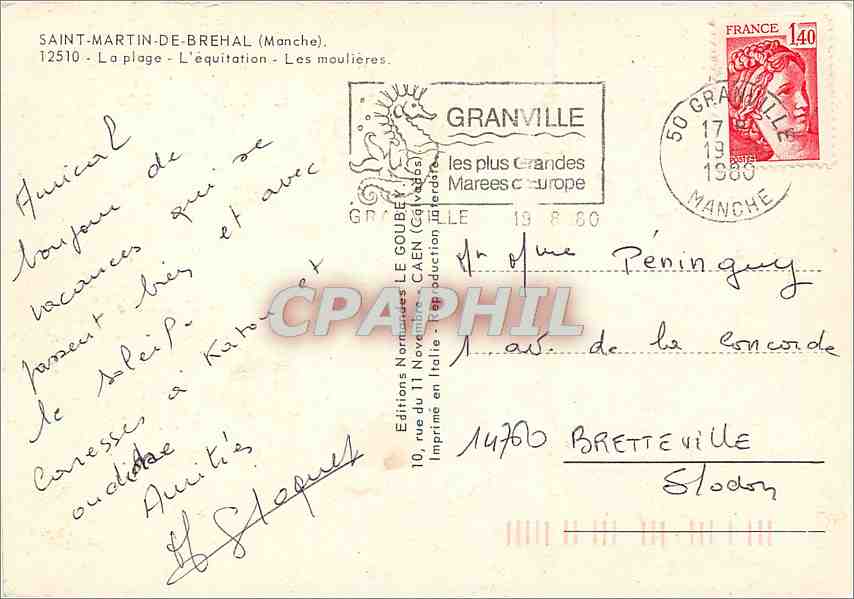 SAINT-MARTIN-DE-BREHAL (Manche).
12510 - La plage - L'équitation - Les moulières.
FRANCE
1,40
POSTES
GRANVILLE
les plus Grandes
Marees d'Europe
GRANVILLE 19 8 80
50 GRANVILLE
17
19
1980
MANCHE
Amical
bonjour de
vacances qui se
passent bien et avec
le soleil.
Caresses à Katou et
Amitiés
Editions Normandes LE GOUBEY
10, rue du 11 Novembre - CAEN (Calvados)
Imprimé en Italie - Reproduction interdite
CPAPHIL
Mr Mme Péninguy
1 av. de la Concorde
14760 BRETTEVILLE
S/odon